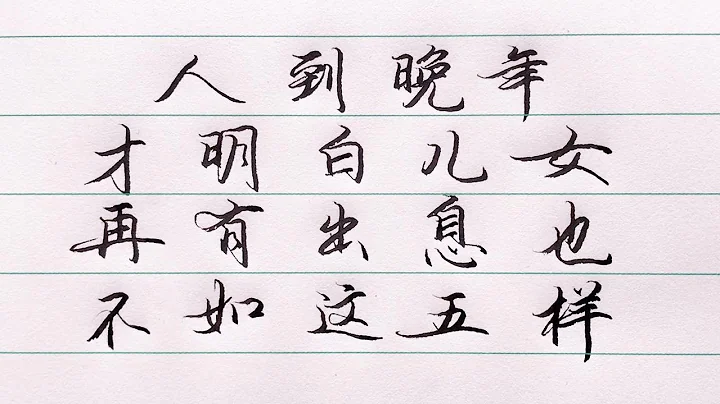 人到晚年
才明白儿女
再有出息也
不如这五样